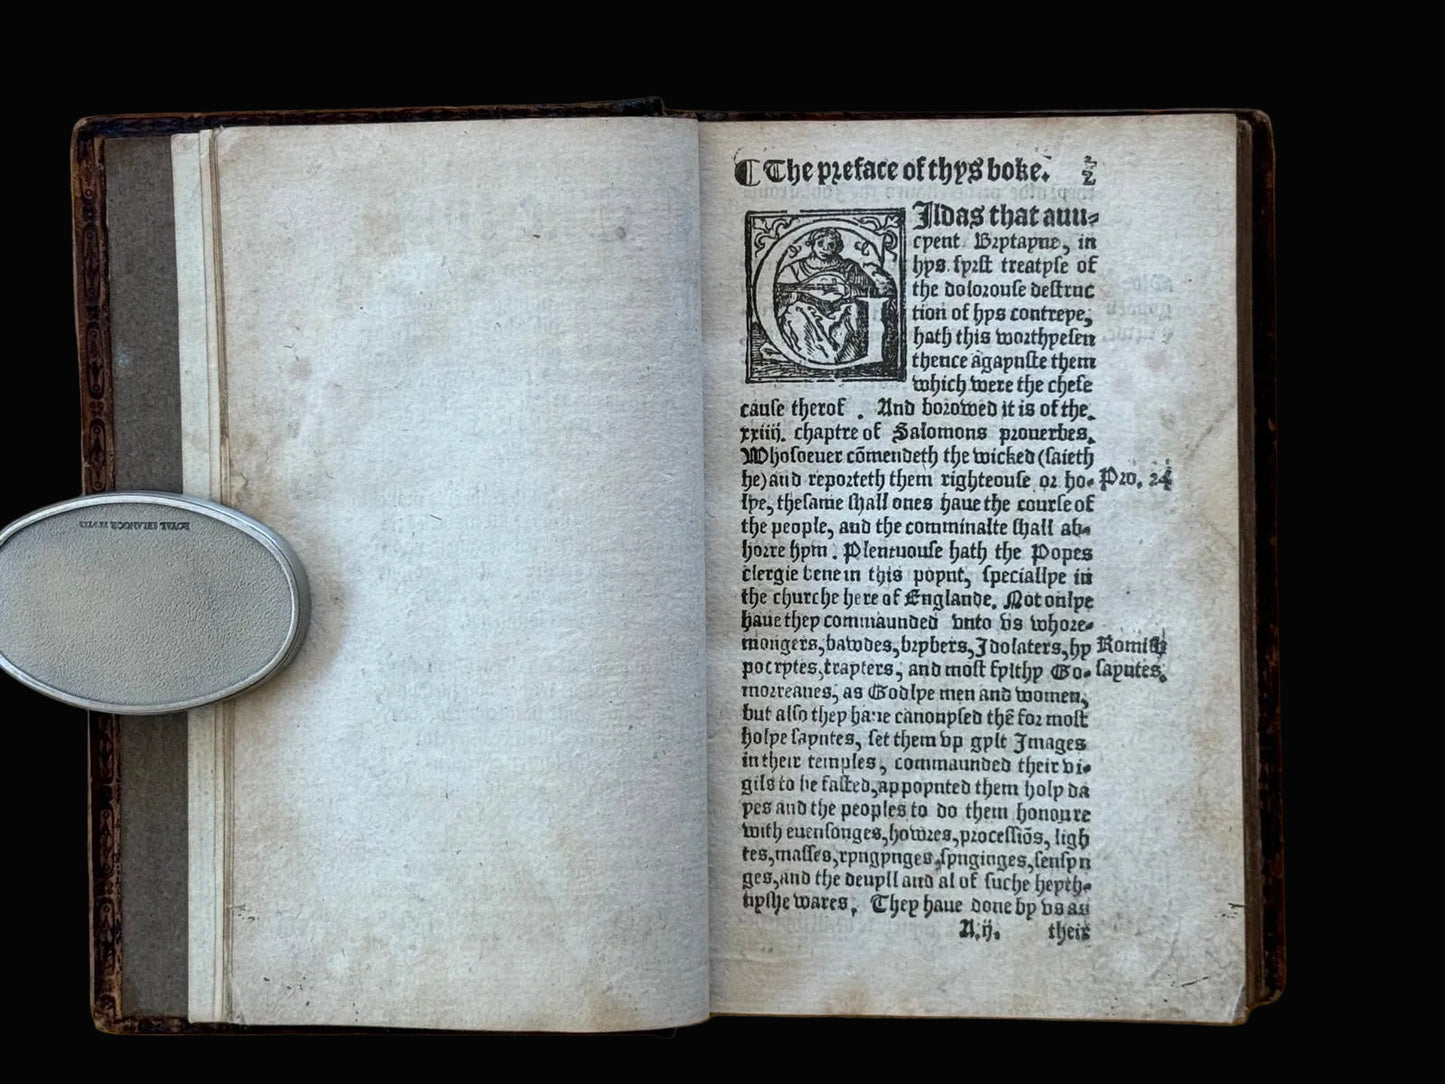 ¶ The preface of thys boke. 2
2
GIldas that auu-
cyent Brytayne, in
hys fyrst treatyse of
the dolorouse destruc
tion of hys contreye,
hath this worthyesen
thence agaynste them
which were the chefe
cause therof . And borowed it is of the.
xxiiij. chaptre of Salomons prouerbes.
Whosoeuer cōmendeth the wicked (saieth
he) and reporteth them righteouse or ho- Pro. 24
lye, thesame shall ones haue the course of
the people, and the comminalte shall ab-
horre hym. Plentuouse hath the Popes
clergie bene in this poynt, speciallye in
the churche here of Englande. Not onlye
haue they commaunded vnto vs whore-
mongers, bawdes, brybers, Idolaters, hy Romish
pocrytes, trayters, and most fylthy Go- sayntes.
morreanes, as Godlye men and women,
but also they haue canonysed thē for most
holye sayntes, set them vp gylt Images
in their temples, commaunded their vi-
gils to be fasted, appoynted them holy da
yes and the peoples to do them honoure
with euensonges, howres, processiōs, ligh
tes, masses, ryngynges, synginges, sensyn
ges, and the deuyll and al of suche heyth-
nyshe wares. They haue done by vs as
A.ij. their
ROYAL SELANGOR